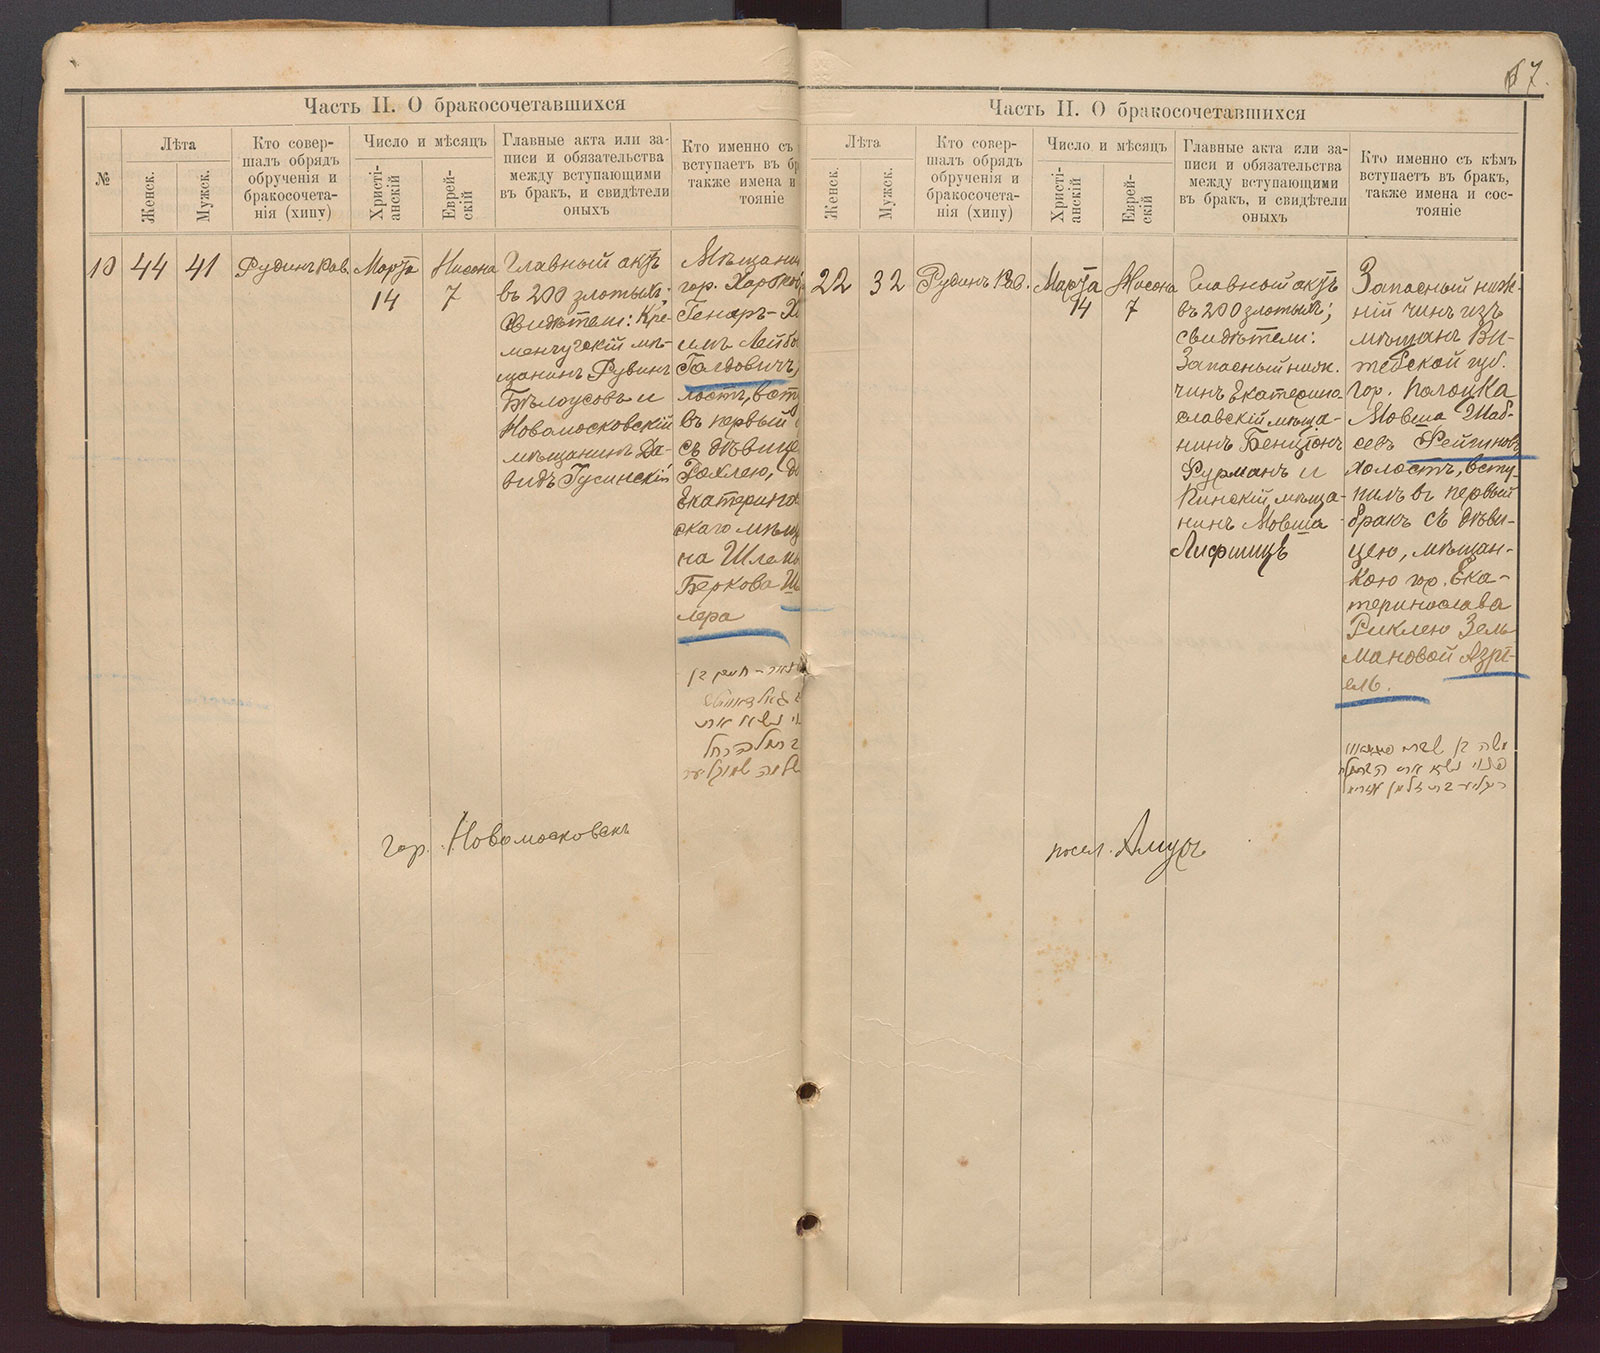 Часть II. О бракосочетавшихся
№
Лѣта
Женск.
Мужск.
Кто совер-
шалъ обрядъ
обрученія и
бракосочета-
нія (хипу)
Число и мѣсяцъ
Христі-
анскій
Еврей-
скій
Главные акта или за-
писи и обязательства
между вступающими
въ бракъ, и свидѣтели
оныхъ
Кто именно съ
вступаетъ въ бр
также имена и
тояніе
10
44
41
Рудинъ Рав.
Марта
14
Нисона
7
Главный актъ
въ 200 злотыхъ;
Свидѣтели: Кре-
менчугскій мѣ-
щанинъ Рувинъ
Бѣлоусовъ и
Новомосковскій
мѣщанинъ Да-
видъ Гусинскій
Мѣщанин
гор. Харьков
Генахъ-Х
имъ Лейбо
лостъ, вст
въ первый
съ дѣвице
Рохлею, д
Екатерино
скаго мѣщ
на Шлемы
Беркова Ш
лера
гор. Новомосковскъ
7.
Часть II. О бракосочетавшихся
Лѣта
Женск.
Мужск.
Кто совер-
шалъ обрядъ
обрученія и
бракосочета-
нія (хипу)
Число и мѣсяцъ
Христі-
анскій
Еврей-
скій
Главные акта или за-
писи и обязательства
между вступающими
въ бракъ, и свидѣтели
оныхъ
Кто именно съ кѣмъ
вступаетъ въ бракъ,
также имена и сос-
тояніе
22
32
Рудинъ Рав.
Марта
14
Нисона
7
Главный актъ
въ 200 злотыхъ;
свидѣтели:
Запасный нижн.
чинъ Екатерино
славскій мѣща-
нинъ Бенціонъ
Фурманъ и
Пинскій мѣща-
нинъ Мовша
Лифшицъ
Запасный ниж-
ній чинъ изъ
мѣщанъ Ви-
тебской губ.
гор. Полоцка
Мовша Шаб-
севъ Фейгиновъ
холостъ, всту-
пилъ въ первый
бракъ съ дѣви-
цею, мѣщан-
кою гор. Ека-
теринослава
Риклею Зель
мановой Азрі-
ель.
посел. Амуръ